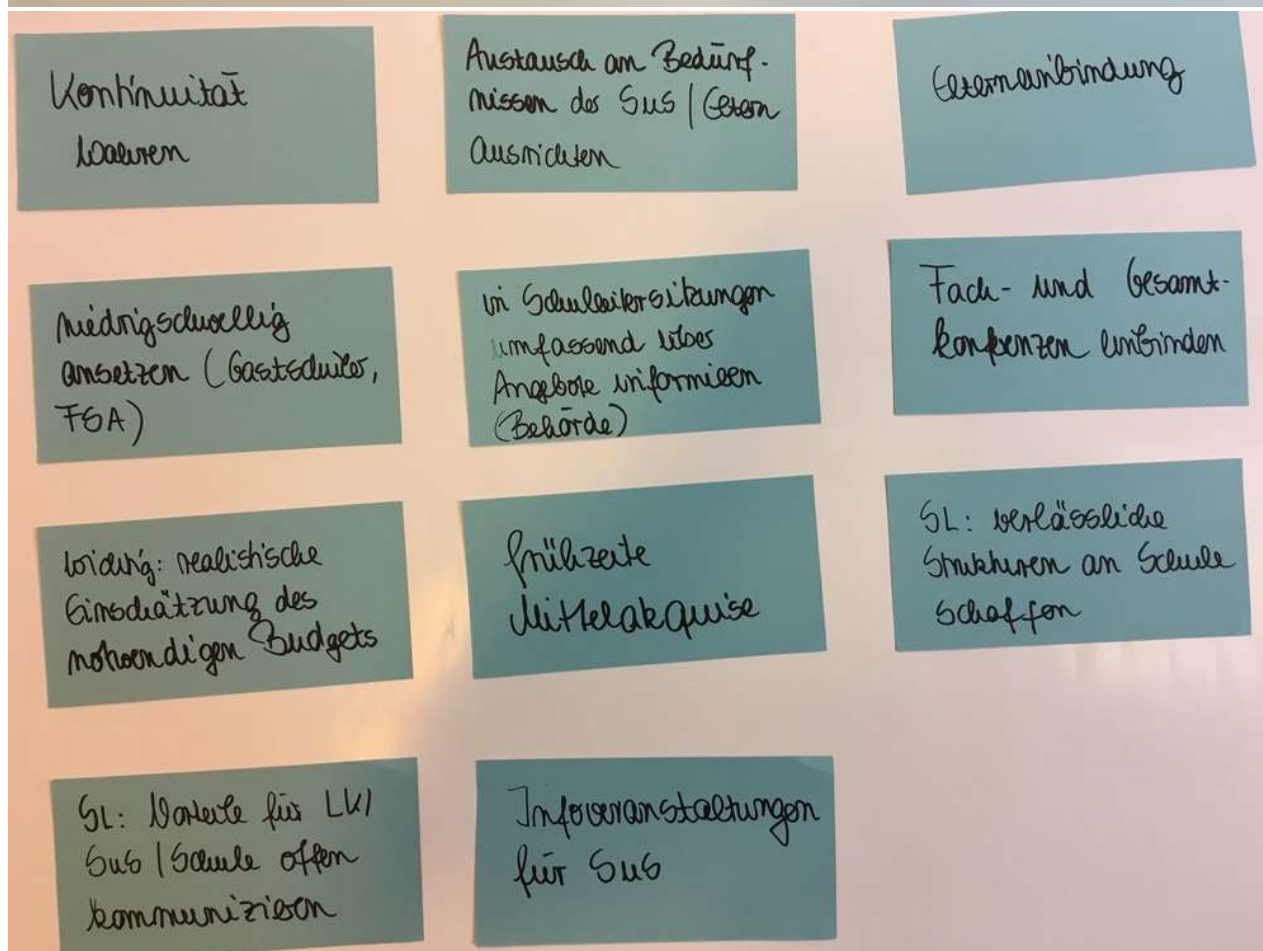 Kontinuität
wahren
Austausch an Bedürf-
nissen der SuS / Eltern
ausrichten
Elterneinbindung
niedrigschwellig
ansetzen (Gastschüler,
FSA)
in Schulleitersitzungen
umfassend über
Angebote informieren
(Behörde)
Fach- und Gesamt-
konferenzen einbinden
wichtig: realistische
Einschätzung des
notwendigen Budgets
frühzeite
Mittelakquise
SL: verlässliche
Strukturen an Schule
schaffen
SL: Vorteile für LK/
SuS / Schule offen
kommunizieren
Infoveranstaltungen
für SuS